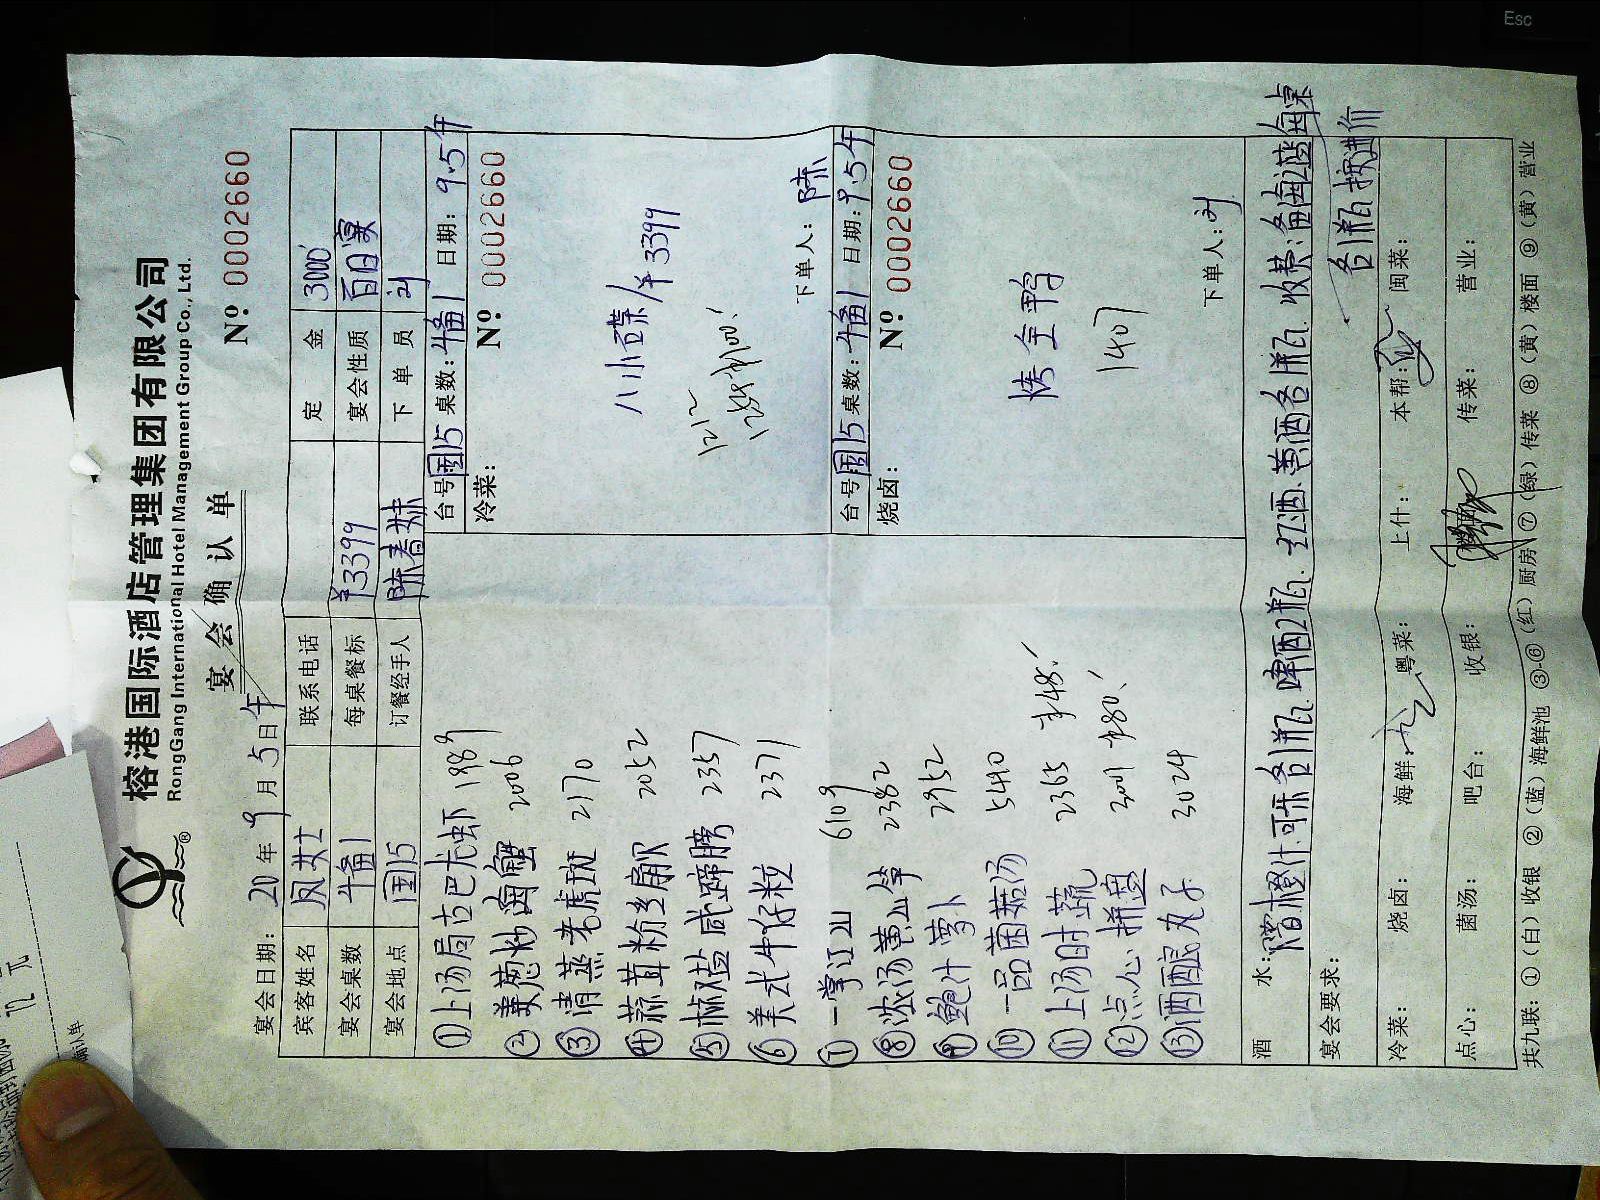 Esc
榕港国际酒店管理集团有限公司
RongGang International Hotel Management Group Co., Ltd.
®
宴会确认单
宴会日期: 20 年 9 月 5 日 午
Nº 0002660
宾客姓名 凤女士 联系电话 定金 3000
宴会桌数 4备1 每桌餐标 ¥3399 宴会性质 百日宴
宴会地点 国15 订餐经手人 陈春妹 下单员 刘
①上汤焗古巴龙虾 1989
②姜葱炒海蟹 2006
③清蒸老虎斑 2170
④蒜茸粉丝扇贝 2052
⑤椒盐咸蹄膀 2357
⑥美式牛仔粒 2371
⑦一掌江山 6109
⑧浓汤黄山笋 2382
⑨鲍汁萝卜 2952
⑩一品菌菇汤 5440
⑪上汤时蔬 2365 48
⑫点心拼盘 3001 80
⑬酒酿丸子 3024
台号: 国15 桌数: 4备1 日期: 9.5午
冷菜: Nº 0002660
八小碟/ ¥3399
1212
下单人: 陈
台号: 国15 桌数: 4备1 日期: 9.5午
烧卤: Nº 0002660
烤全鸭
1407
下单人: 刘
酒水: 橙汁.可乐各1瓶.啤酒2瓶.红酒.黄酒各1瓶.
海之蓝每桌
各1瓶按进价
宴会要求:
冷菜: 烧卤: 海鲜: 粤菜: 上什: 本帮: 闽菜:
点心: 菌汤: 吧台: 收银: 传菜: 营业:
共九联: ①(白)收银 ②(蓝)海鲜池 ③-⑥(红)厨房 ⑦(绿)传菜 ⑧(黄)楼面 ⑨(黄)营业
72 元